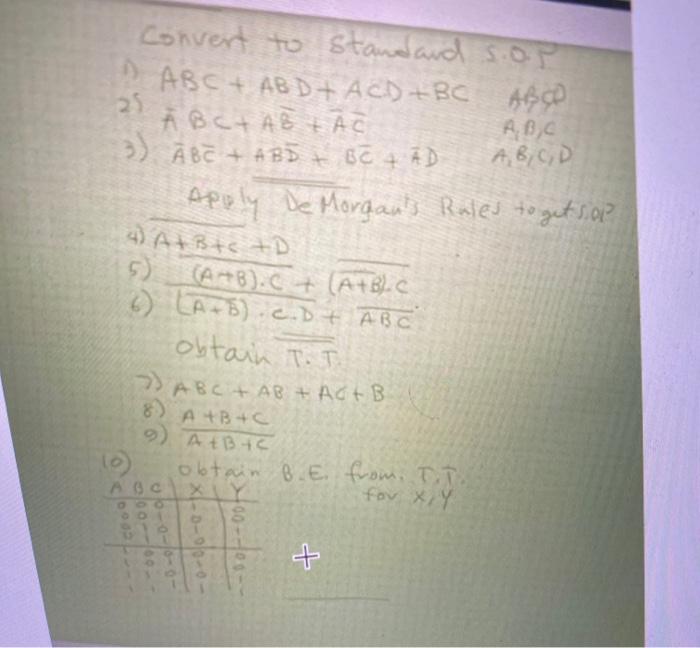 Convert to Standard S.O.P
1) ABC + ABD + ACD + BC A,B,C,D
2) A̅BC + AB̅ + A̅C̅ A,B,C
3) A̅BC̅ + ABD̅ + BC̅ + A̅D A,B,C,D
Apply De Morgan's Rules to get S.O.P
4) A+B+C + D
5) (A+B).C + (A+B).C
6) (A+B).C.D + ABC
obtain T.T.
7) ABC + AB + AC + B
8) A+B+C
9) A+B+C
10) obtain B.E. from T.T.
for X,Y
A B C X Y
0 0 0
0 0 1
0 1 0
0 1 1
1 0 0
1 0 1
1 1 0
1 1 1